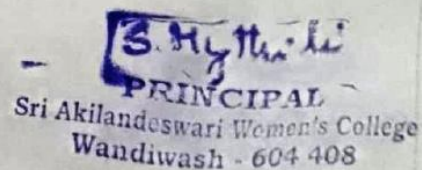 S. Mythili
PRINCIPAL
Sri Akilandeswari Women's College
Wandiwash - 604 408